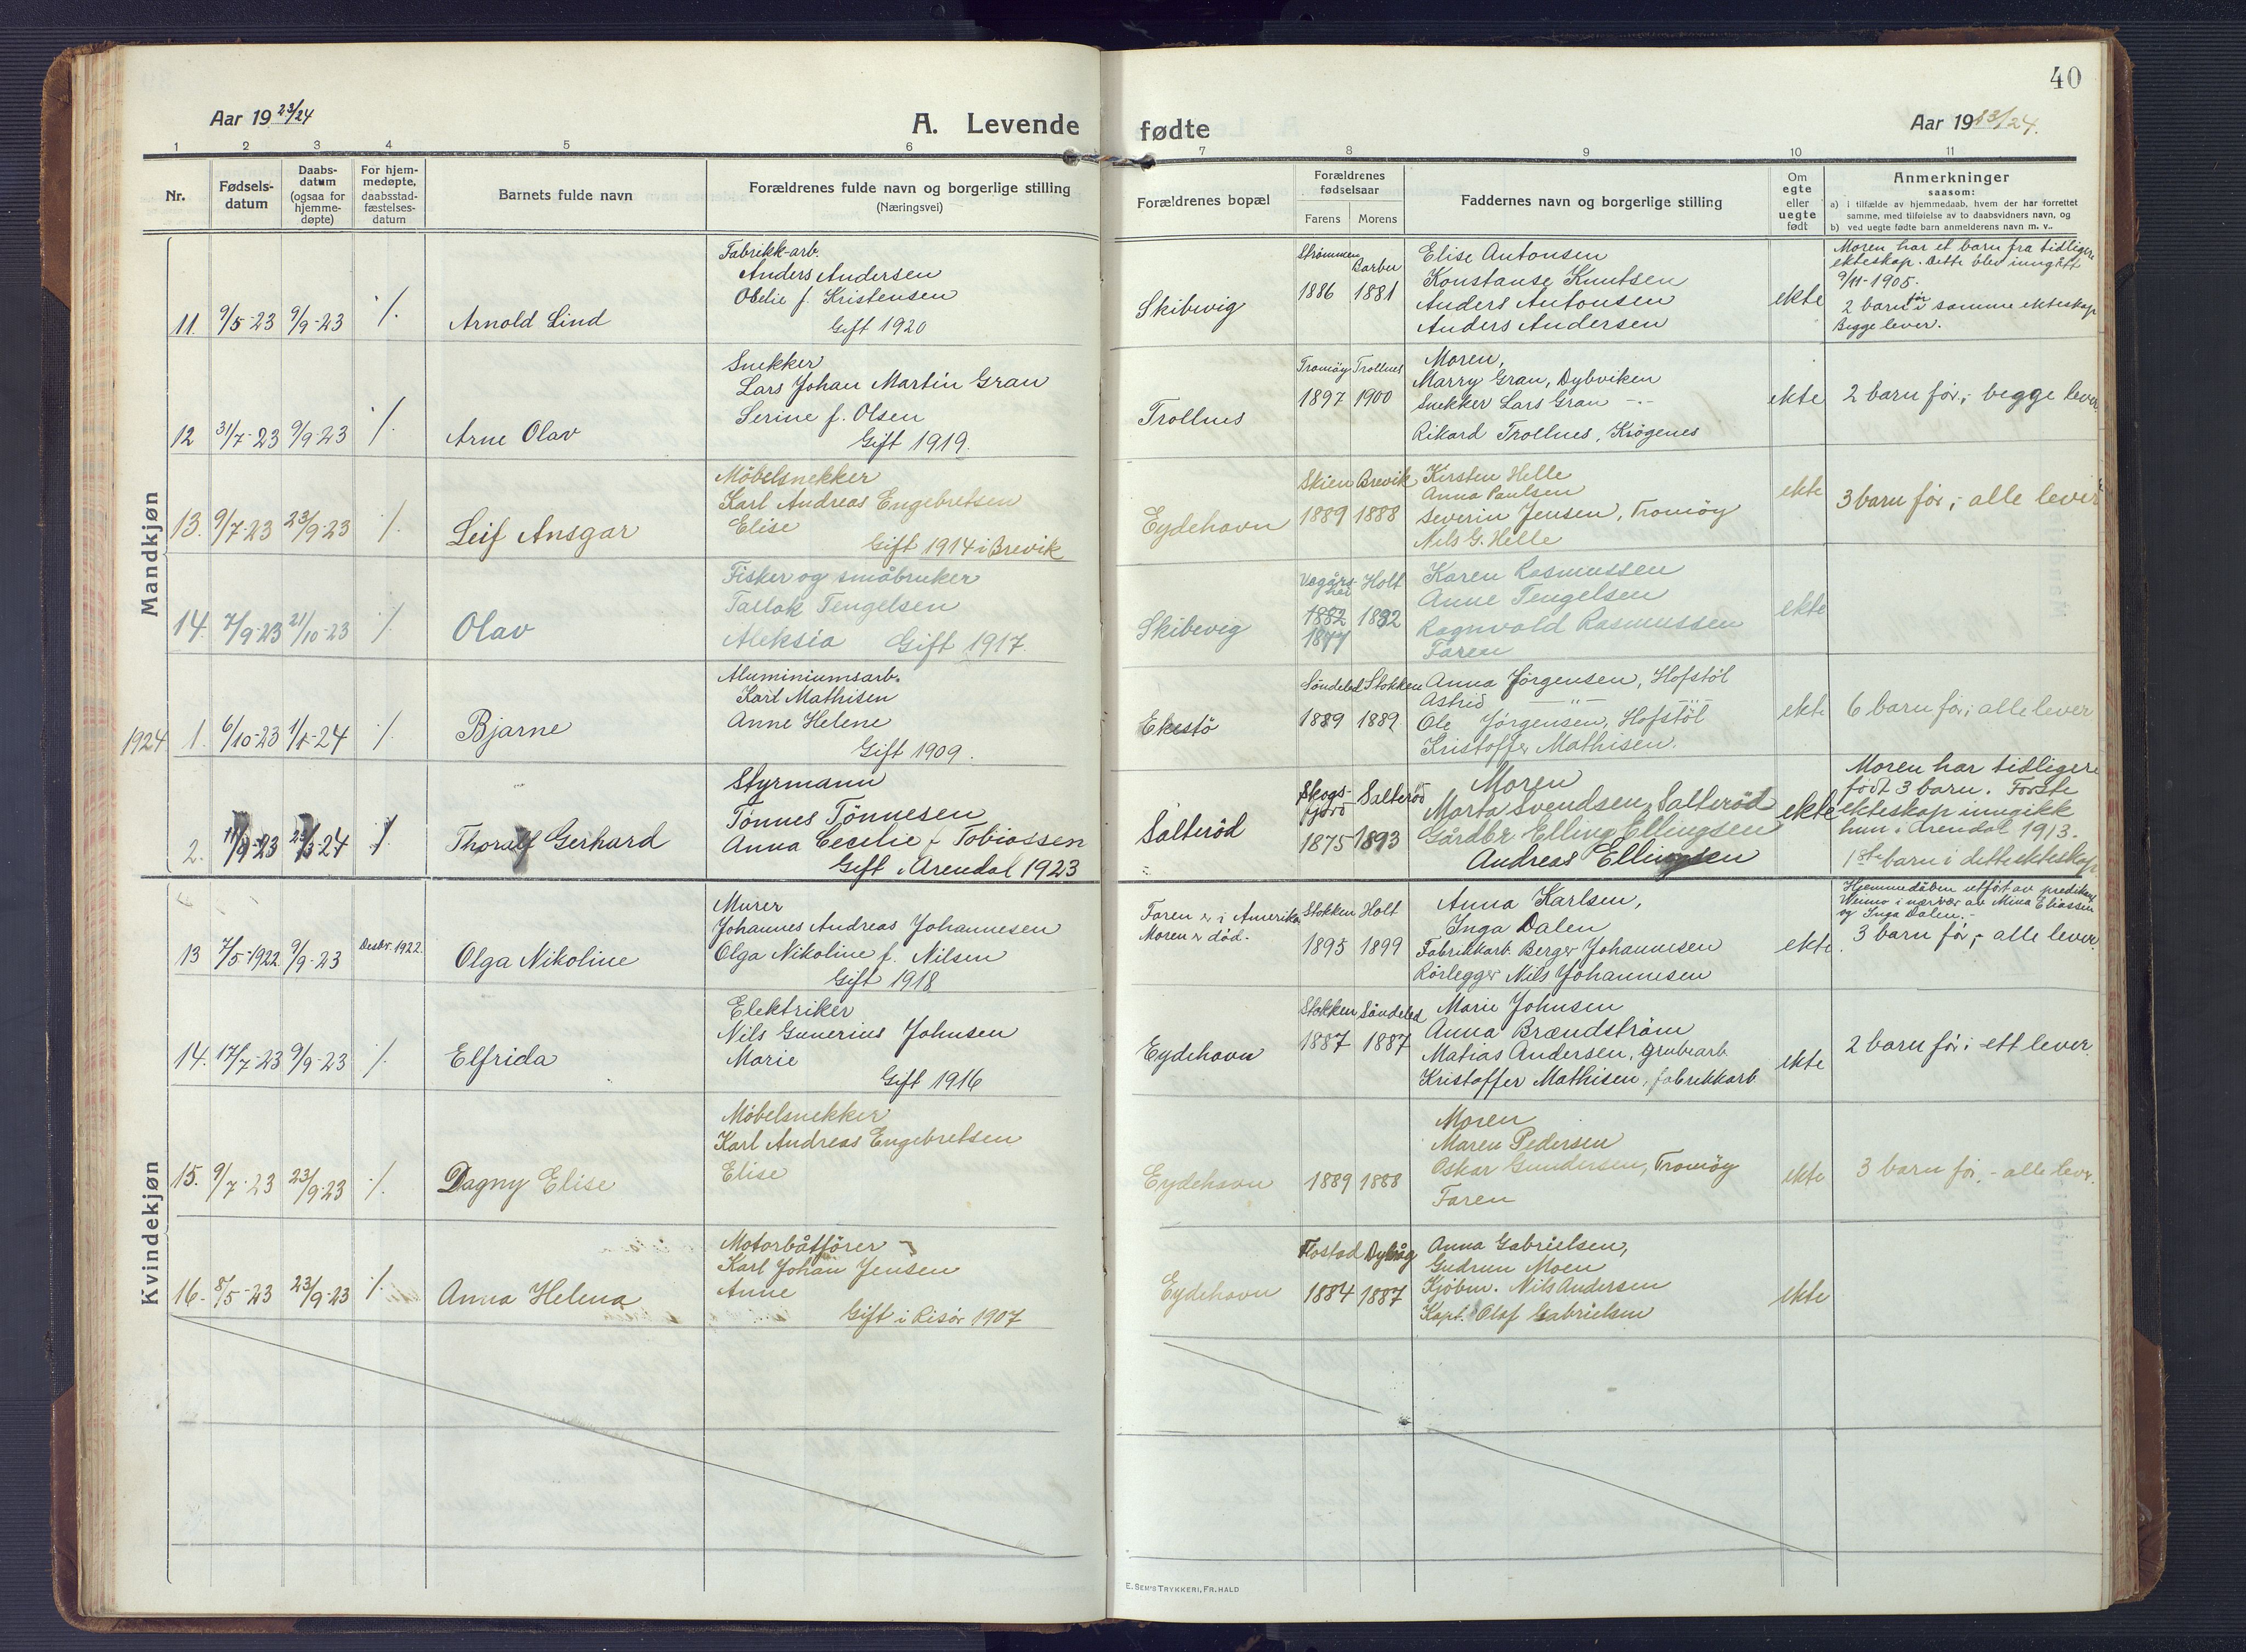 40
Aar 1923/24
A. Levende
fødte
Aar 1923/24.
1 2 3 4 5 6 7 8 9 10 11
Nr.
Fødsels-
datum
Daabs-
datum
(ogsaa for
hjemme-
døpte)
For hjem-
medøpte,
daabsstad-
fæstelses-
datum
Barnets fulde navn
Forældrenes fulde navn og borgerlige stilling
(Næringsvei)
Forældrenes bopæl
Forældrenes
fødselsaar
Farens Morens
Faddernes navn og borgerlige stilling
Om
egte
eller
uegte
født
Anmerkninger
saasom:
a) i tilfælde av hjemmedaab, hvem der har forrettet
samme, med tilføielse av to daabsvidners navn, og
b) ved uegte fødte barn anmelderens navn m. v..
Mandkjøn
11. 9/5-23 9/9-23 ·/.
Arnold Lind
Fabrikk-arb.
Anders Andersen
Obelie f. Kristensen
Gift 1920
Skibevig
Strømmen Barbu
1886 1881
Elise Antonsen
Konstanse Knutsen
Anders Antonsen
Anders Andersen
ekte
Moren har et barn fra tidligere
ekteskap. Dette blev inngått
9/11-1905.
2 barn før i samme ekteskap
Begge lever.
12 31/7-23 9/9-23 ·/.
Arne Olav
Snekker
Lars Johan Martin Gran
Serine f. Olsen
Gift 1919.
Trollnes
Tromøy Trollnes
1897 1900
Moren,
Marry Gran, Dybviken
Snekker Lars Gran -·-
Rikard Trollnes, Kiøgenes
ekte
2 barn før; begge lever
13. 9/7-23 23/9-23 ·/.
Leif Ansgar
Möbelsnekker
Karl Andreas Engebretsen
Elise
Gift 1914 i Brevik
Eydehavn
Skien Brevik
1889 1888
Kirsten Helle
Anna Paulsen
Severin Jensen, Tromöy
Nils G. Helle
ekte
3 barn før; alle lever
14. 7/9-23 21/10-23 ·/.
Olav
Fisker og småbruker
Tallak Tengelsen
Aleksia Gift 1917.
Skibevig
Vegårshei Holt
1882 1892
1877
Karen Rasmussen
Anne Tengelsen
Ragnvald Rasmussen
Faren
ekte
1924 1. 6/10-23 1/1-24 ·/.
Bjarne
Aluminiumsarb.
Karl Mathisen
Anne Helene
Gift 1909.
Ekestö
Söndeled Stokken
1889 1889
Anna Jörgensen, Hofstöl
Astrid — " — — " —
Ole Jörgensen, Hofstöl
Kristoffer Mathisen.
ekte
6 barn før; alle lever
2. 11/9-23 24-24 ·/.
Thoralf Gerhard
Styrmann
Tönnes Tönnesen
Anna Cecilie f. Tobiassen
Gift i Arendal 1923
Salteröd
Skogs-
fjord Salteröd
1875 1893
Moren
Marta Svendsen, Salteröd
Gårdbr Elling Ellingsen
Andreas Ellingsen
ekte
Moren har tidligere
født 3 barn. Første
ekteskap inngikk
hun i Arendal 1913.
1ste barn i dette ekteskap
Kvindekjøn
13 7/5-1922. 9/9-23 Desbr. 1922.
Olga Nikoline
Murer
Johannes Andreas Johannesen
Olga Nikoline f. Nilsen
Gift 1918
Faren er i Amerika
Moren er död.
Stokken Holt
1895 1899
Anna Karlsen,
Inga Dalen
Fabrikkarb. Berger Johannesen
Rörlegger Nils Johannesen
ekte
Hjemmedåben utfört av predikant
i nærvær av Mina Eliassen
og Inga Dalen.-
3 barn før; - alle lever.
14. 17/7-23 9/9-23 ·/.
Elfrida
Elektriker
Nils Gunerius Johnsen
Marie
Gift 1916
Eydehavn
Stokken Söndeled
1887 1887
Marie Johnsen
Anna Brændström
Matias Andersen, grubearb.
Kristoffer Mathisen, fabrikkarb.
ekte
2 barn før; - ett lever.
15. 9/7-23 23/9-23 ·/.
Dagny Elise
Möbelsnekker
Karl Andreas Engebretsen
Elise
Eydehavn
1889 1888
Moren
Maren Pedersen
Oskar Gundersen, Tromöy
Faren
ekte
3 barn før, - alle lever.
16. 8/5-23 23/9-23 ·/.
Anna Helena
Motorbåtförer
Karl Johan Jensen
Anne
Gift i Risör 1907
Eydehavn
Flostad Dybvåg
1884 1887
Anna Gabrielsen,
Gudrun Moen
Kjöbm. Nils Andersen
Kapt. Olaf Gabrielsen
ekte
E. SEM'S TRYKKERI, FR. HALD